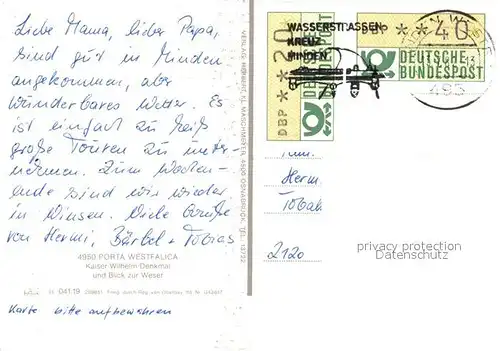 Liebe Mama, lieber Papa,
sind gut in Minden
angekommen, aber
wunderbares Wetter. Es
ist einfach zu heiß
große Touren zu unter-
nehmen. Zum Wochen-
ende sind wir wieder
in Winsen. Viele Grüße
von Hermi, Bärbel + Tobias
4950 PORTA WESTFALICA
Kaiser-Wilhelm-Denkmal
und Blick zur Weser
041.19
Karte bitte aufbewahren
VERLAG: MASCHMEYER, 4500 OSNABRÜCK, TEL.
WASSERSTRASSEN
KREUZ
MINDEN
DBP ** 20
DBP ** 40
DEUTSCHE
BUNDESPOST
495
Herm
Tobak
2120
privacy protection
Datenschutz